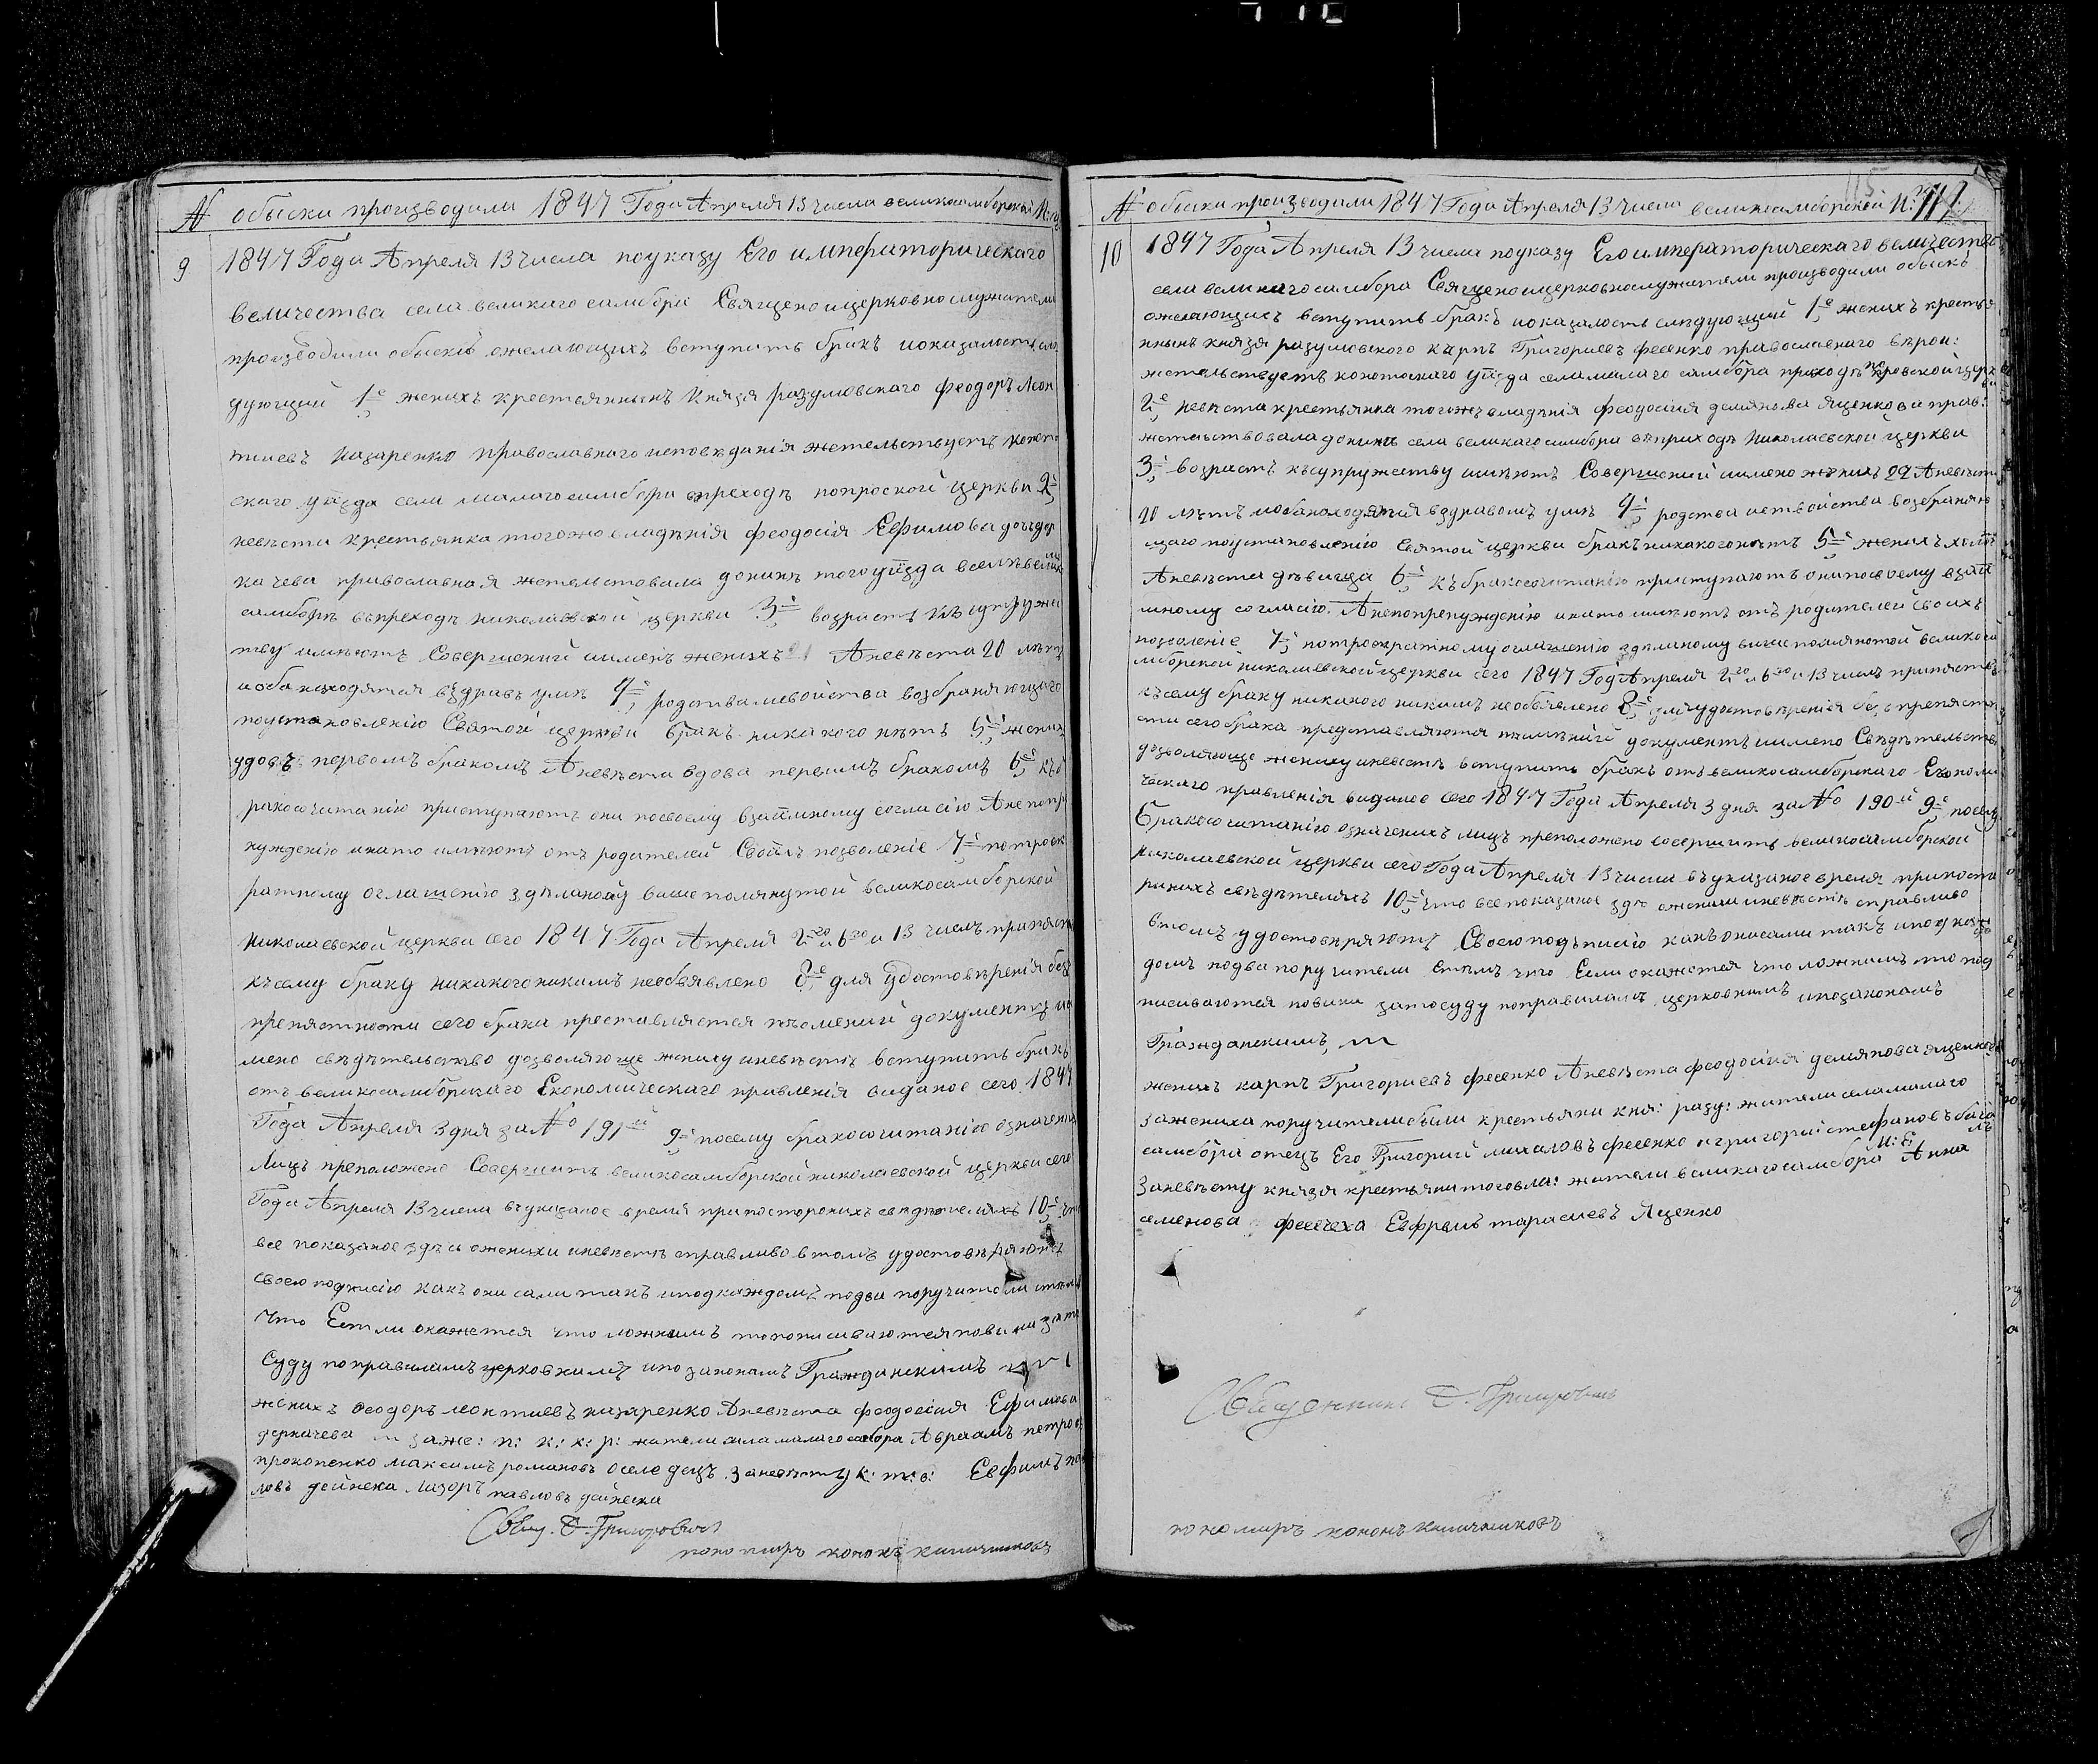 № обыски производили 1847 Года Апреля 13 числа великосамборской
9 1847 Года Апреля 13 числа поуказу Его императорическаго
величества села великаго самбора Священоицерковнослужители
производили обыскъ ожелающихъ вступить бракъ ипоказалость
дующий 1е женихъ крестьянынъ Князя разумовскаго феодоръ Леон
тиевъ назаренко православнаго исповеданія жетельствуетъ коното
скаго уѣзда села малагосамбора преходъ попроской церкви 2е
невѣста крестьянка тогожовладѣнія феодосія Ефимова
качева православная жетельствовала донинѣ того уѣзда
самборѣ въпреходѣ николаевской церкви 3е возрастъ къ супруже
тву имѣютъ Совершений именъ женихъ 21 Аневѣста 20 лѣтъ
иоба находятся въздравъ умѣ 4е родства исвойства возбраняющаго
поустановленію Святой церкви бракъ никакого нѣтъ 5е женихъ
удовъ первомъ бракомъ Аневѣста вдова первимъ бракомъ 6е къб
ракосочитанію приступаютъ они посвоему взаимному согласію Анепопри
нужденію инато имѣютъ отъ родителей Своихъ позволеніе 7е потроек
ратному оглашенію здѣланому више помянутой великосамборской
николаевской церкви сего 1847 Года Апреля 2го 6го и 13 числъ припятств
къ сему браку никакого никимъ необъявлено 8е для удостовѣренія без
препятности сего брака преставляется писмений документъ
мено свѣдѣтельство дозволяюще жениху иневѣстѣ вступить бракъ
отъ великосамборскаго Економическаго правленія виданое сего 1847
Года Апреля 3 дня за № 191 9е посему бракосочитанію означеных
Лицъ преположено Совершить великосамборской николаевской церкви сего
Года Апреля 13 числа въуказаное время припосторонихъ свѣдѣтеляхъ 10е что
все показаное здѣсь оженихи иневѣстѣ справливо втомъ удостовѣряютъ
своею подписію какъ они сами такъ иподкаждомъ подва поручители
что Естли окажется что ложнимъ
суду поправиламъ церковнимъ ипозаконамъ Гражданскимъ
женихъ Феодоръ леонтиевъ назаренко Аневѣста феодосія Ефимова
деркачева заже: п: к: к: р: жители села малагосамбора Авраамъ петровъ
прокопенко максимъ романовъ оселедецъ заневѣсту к: т: в: Евфимъ
ловъ дейнека Лазоръ павловъ дейнека
Свящ. Ѳ. Григоровичъ
пономарь кононъ
№ обыски производили 1847 Года Апреля 13 числа великосамборской
10 1847 Года Апреля 13 числа поуказу Его императорическаго величества
села великаго самбора Священоицерковнослужители производили обыскъ
ожелающихъ вступить бракъ ипоказалость слѣдующий 1е женихъ крестья
нынъ князя разумовского карпъ Григориевъ фесенко православнаго вѣрои:
жетельствуетъ конотоскаго уѣзда села малаго самбора приходъ покровской церк
2е невѣста крестьянка тогожъ владѣнія феодосія демянова Яценкова прав:
жетельствовала донинѣ села великаго самбора въприходѣ николаевской церкви
3е возрастъ къ супружеству имѣютъ Совершений имено женихъ 22 Аневѣста
20 лѣтъ иобанаходятся вздравомъ умѣ 4е родства исвойства возбраняю
щаго поустановленію Святой церкви бракъ никакого нѣтъ 5е женихъ
Аневѣста дѣвица 6е къ бракосочитанію приступаютъ они посвоему взаи
мному согласію Анепопренужденію инато имѣютъ отъ родителей своихъ
позволеніе 7е потроекратному оглашенію здѣланому више помянотой великоса
мборской николаевской церкви сего 1847 Года Апреля 2го 6го и 13 числъ припятств
къ сему браку никакого никимъ необъявлено 8е для удостовѣренія безъ препятст
сти сего брака представляются писмений документъ имено Свѣдѣтельство
дозволяюще жениху иневестѣ вступить бракъ отъ великосамборскаго Економи
ческаго правленія виданое сего 1847 Года Апреля 3 дня за № 190 9е посему
Бракосочитанію означеныхъ лицъ преположено совершить великосамборской
николаевской церкви сего Года Апреля 13 числа въуказаное время припосто
ринихъ свѣдѣтеляхъ 10е что все показаное здѣ ожениси иневестѣ справливо
втомъ удостовѣряютъ Своею подписію какъ они сами такъ иподкаж
домъ подва поручители стѣмъ что Если окажется что ложнимъ то под
писиваются повини затосуду поправиламъ церковнимъ ипозаконамъ
Гражданскимъ
женихъ карпъ Григориевъ фесенко Аневѣста феодосія демянова яценкова
зажениха поручителибыли крестьяни кня: разу: жители села малаго
самбора отецъ Его Григорий михаловъ фесенко и григорий стефановъ
заневѣсту князя крестьяни тоговла: жители великаго самбора М: Е: Анна
семенова Евфремъ тарасиевъ Яценко
Священникъ Ѳ. Григоровичъ
пономарь кононъ